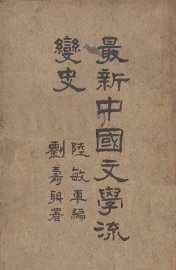 最新中國文學流
變史
陸敏車編
劉壽朋署